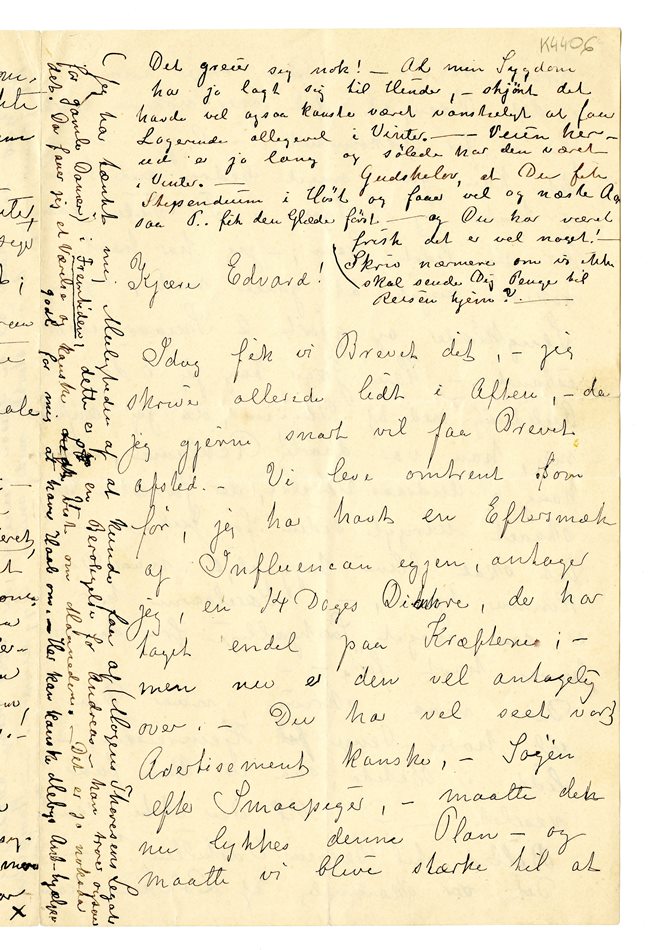 K4406
Det greier sig nok! – At min Sygdom
har jo lagt sig til Hinder, – skjønt det
havde vel ogsaa kanske været vanskeligt at faa
Logerende allegevel i Vinter. – – Veien her-
ud er jo lang og sølede har den været
i Vinter. – Gudskelov, at Du fik
Stipendium i Høst og faaer vel og næste Aar
saa P.. fik den Glæde først – og Du har været
frisk det er vel noget! –
(Skriv nærmere om vi ikke
skal sende Dig Penge til
Reisen hjem?. –
Kjære Edvard!
Idag fik vi Brevet dit, – jeg
skriver allerede lidt i Aften, – da
jeg gjerne snart vil faa Brevet
afsted. – Vi leve omtrent som
før, jeg har havt en Eftersmæk
af Influencan egjen, antager
jeg, en 14 Dages Diahre, der har
taget endel paa Kræfterne; –
men nu er den vel antagelig
over. – Du har vel seet vort
Avertisement kanske, – Søgen
efter Smaapiger, – maatte den
nu lykkes denne Plan – og
maatte vi blive stærke til at
(Jeg har tænkt mig Muligheden af at kunde faa af (Mogens Thoresens Legat
for gamle Damer) i Fremtiden, dette er en Beroligelse for Andreas – han troer ogsaa
det. Da faaer jeg et Værelse og kanske Kost om Maaneden. – Det er jo
godt for mig at have Haab om. – Her kan kanske